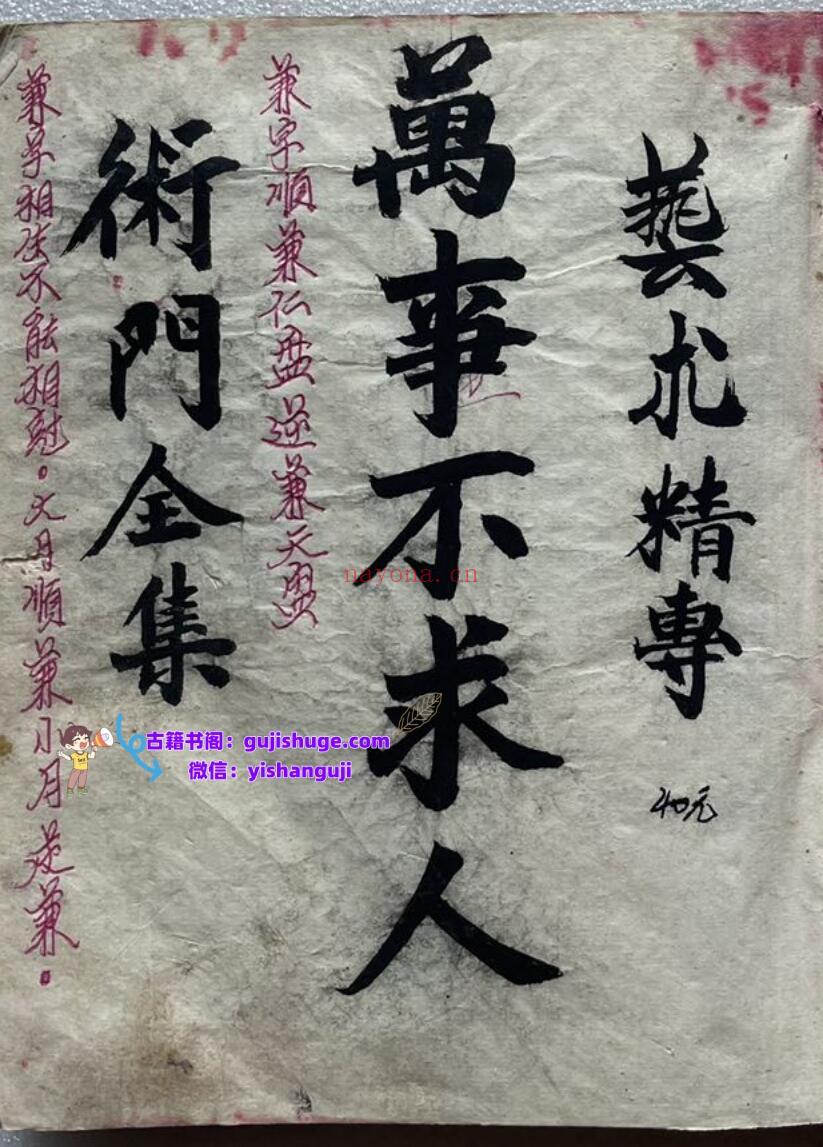 藝朮精專
40元
萬事不求人
兼字順兼仁盘逆兼天盤
術門全集
兼字相生不能相尅。大月順兼小月逆兼。
nayona.cn
古籍书阁：gujishuge.com
微信：yishanguji